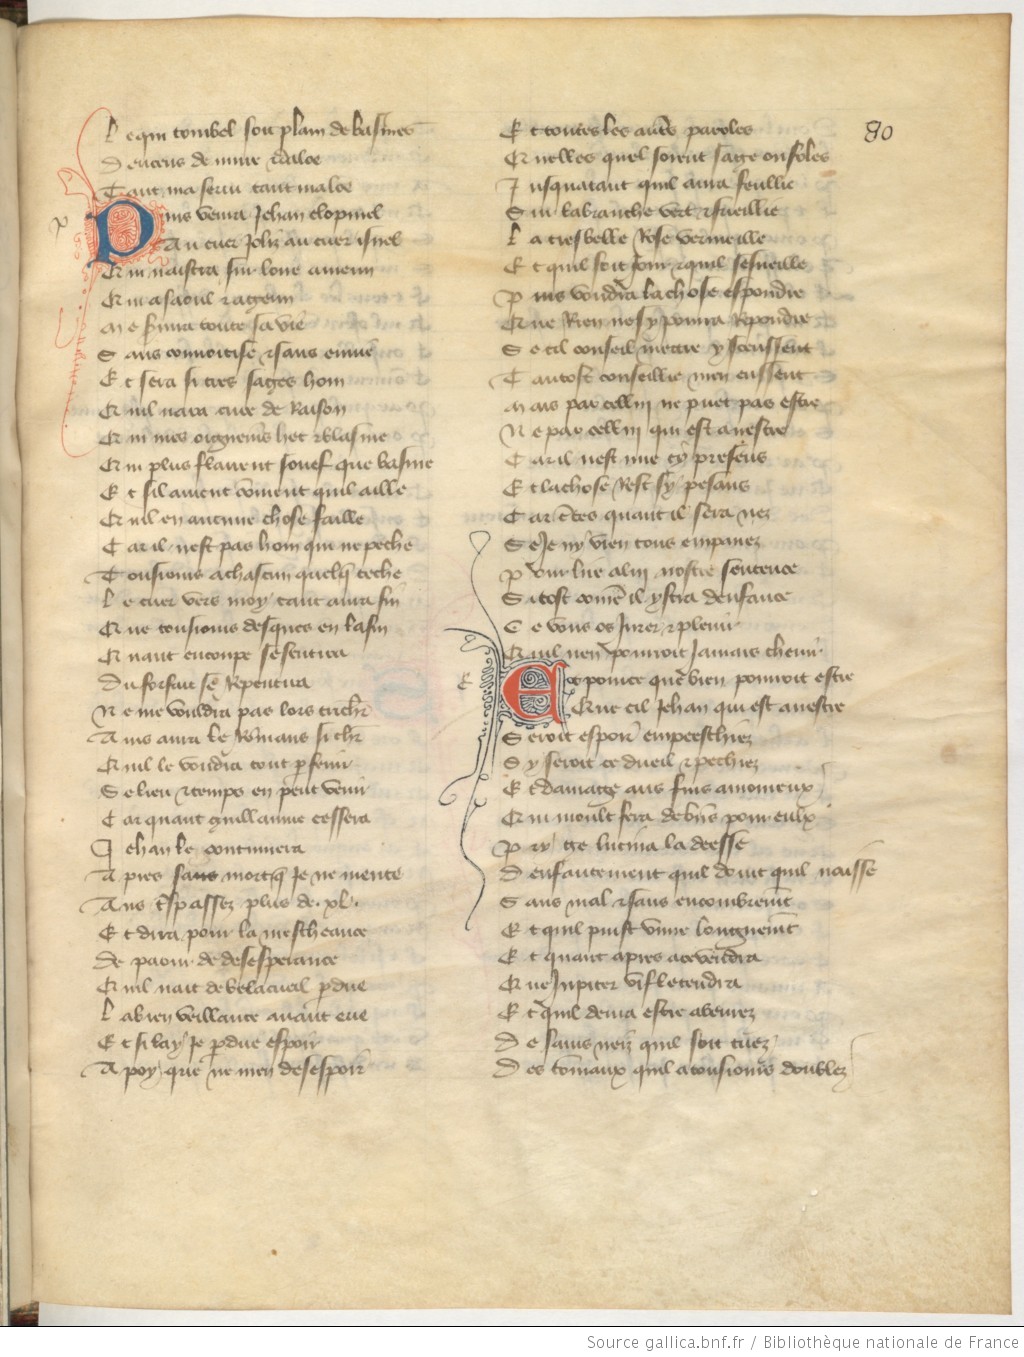 80
Le qui tombel soit plain de basmes
Dencens de mirre & daloe
Tant ma serui tant ma loe
Puis venra Jehan clopinel
Au cuer joliz au cuer isnel
Qui naistra sur loire a meun
Qui a saoul & a geun
Me seruira toute sa vie
Sans conuoitise & sans enuie
Et sera si tres sages hom
Quil nara cure de Raison
Qui mes oignemens het & blasme
Qui plus flairent souef que basme
Et sil auient coment quil aille
Quil en aucune chose faille
Car il nest pas hom qui ne peche
Tousiours a chascun quelq teche
Le cuer vers moy tant aura fin
Que tousiours desques en la fin
Quant encoupe se sentira
Du forfait se Repentira
Ne me vouldra pas lors trichr
Ains aura le Romans si chr
Quil le voudra tout pfenir
Se lieu & temps en peut venir
Car quant guillaume cessera
Jehan le continuera
Apres sa mort q Je ne mente
Ans tspassez plus de .xl.
Et dira pour la mescheance
De paour de desesperance
Quil nait de belacueil pdue
La bien veillance auant eue
Et si lay Je pdue espoir
A poy que ne men desespoir
Et toutes les autes paroles
Quelles quel soient sage ou foles
Jusqua tant quil aura cueillie
Sur la branche vert & fueillie
La tresbelle Rose vermeille
Et quil soit jour & quil sesueille
Puis voudra la chose espondre
Que Rien ne sy pourra Repondre
Se cil conseil mettre y sceussent
Tantost conseillie men eussent
Mais par cellui ne puet pas estre
Ne par cellui qui est a nestre
Car il nest mie cy presens
Et la chose Rest sy pesans
Car ctes quant il sera nez
Se Je ny vien tous empanez
Pour lire a lui nostre sentence
Si tost come il ystra denfance
Ce vous os jurer & pleuir
Quil nen pourroit jamais cheuir
Et pource que bien pourroit estre
Que cil Jehan qui est a nestre
Seroit espoir empeeschiez
Sy seroit ce dueil & pechiez
Et damage aus fins amoureux
Qui moult fera de biens pour eulx
Pry ge lucina la deesse
Denfantement quil doint quil naisse
Sans mal & sans encombremt
Et quil puist viure longuemt
Et quant apres a ce vendra
Que Jupiter vif le tendra
Et quil deura estre abeurez
De sains neiz quil soit tuez
Des tonniaux quil a tousiours doublez
Source gallica.bnf.fr / Bibliothèque nationale de France